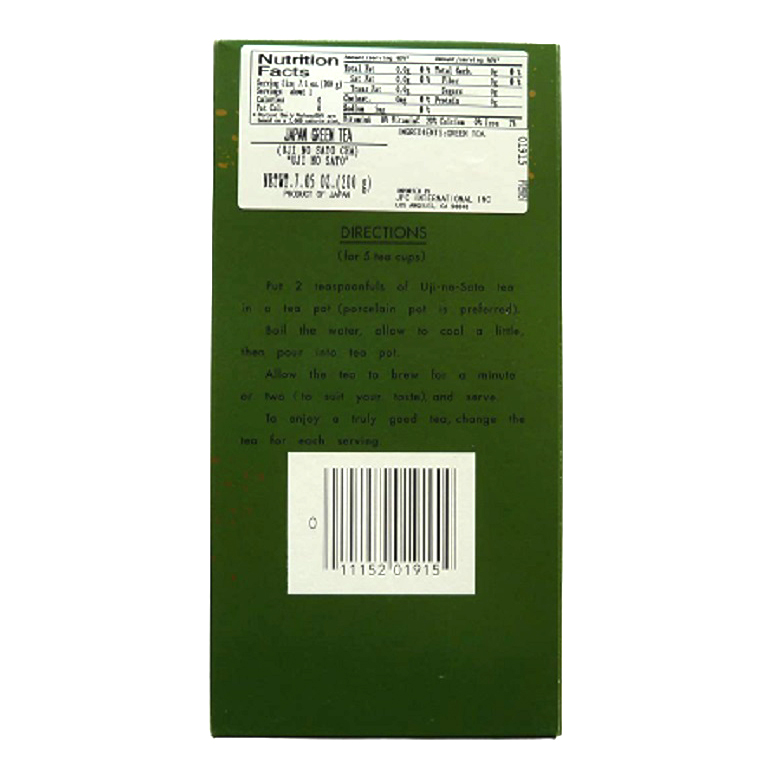 Nutrition
Facts
Amount/serving %DV*
Amount/serving %DV*
Total Fat 0.0g 0% Total Carb. 0g 0%
Sat Fat 0.0g 0% Fiber 0g 0%
Trans Fat 0.0g Sugars 0g
Cholest. 0mg 0% Protein 0g
0%
Calories 0
Fat Cal. 0
Calcium 0% Iron
JAPAN GREEN TEA
(UJI NO SATO CHA)
"UJI NO SATO"
NETWT.7.05 OZ.(200 g)
PRODUCT OF JAPAN
INGREDIENTS:GREEN TEA
JFC INTERNATIONAL INC
LOS ANGELES, CA
01915
DIRECTIONS
(for 5 tea cups)
Put 2 teaspoonfuls of Uji-no-Sato tea
in a tea pot (porcelain pot is preferred).
Boil the water, allow to cool a little,
then pour into tea pot.
Allow the tea to brew for a minute
or two (to suit your taste), and serve.
To enjoy a truly good tea, change the
tea for each serving
0 11152 01915